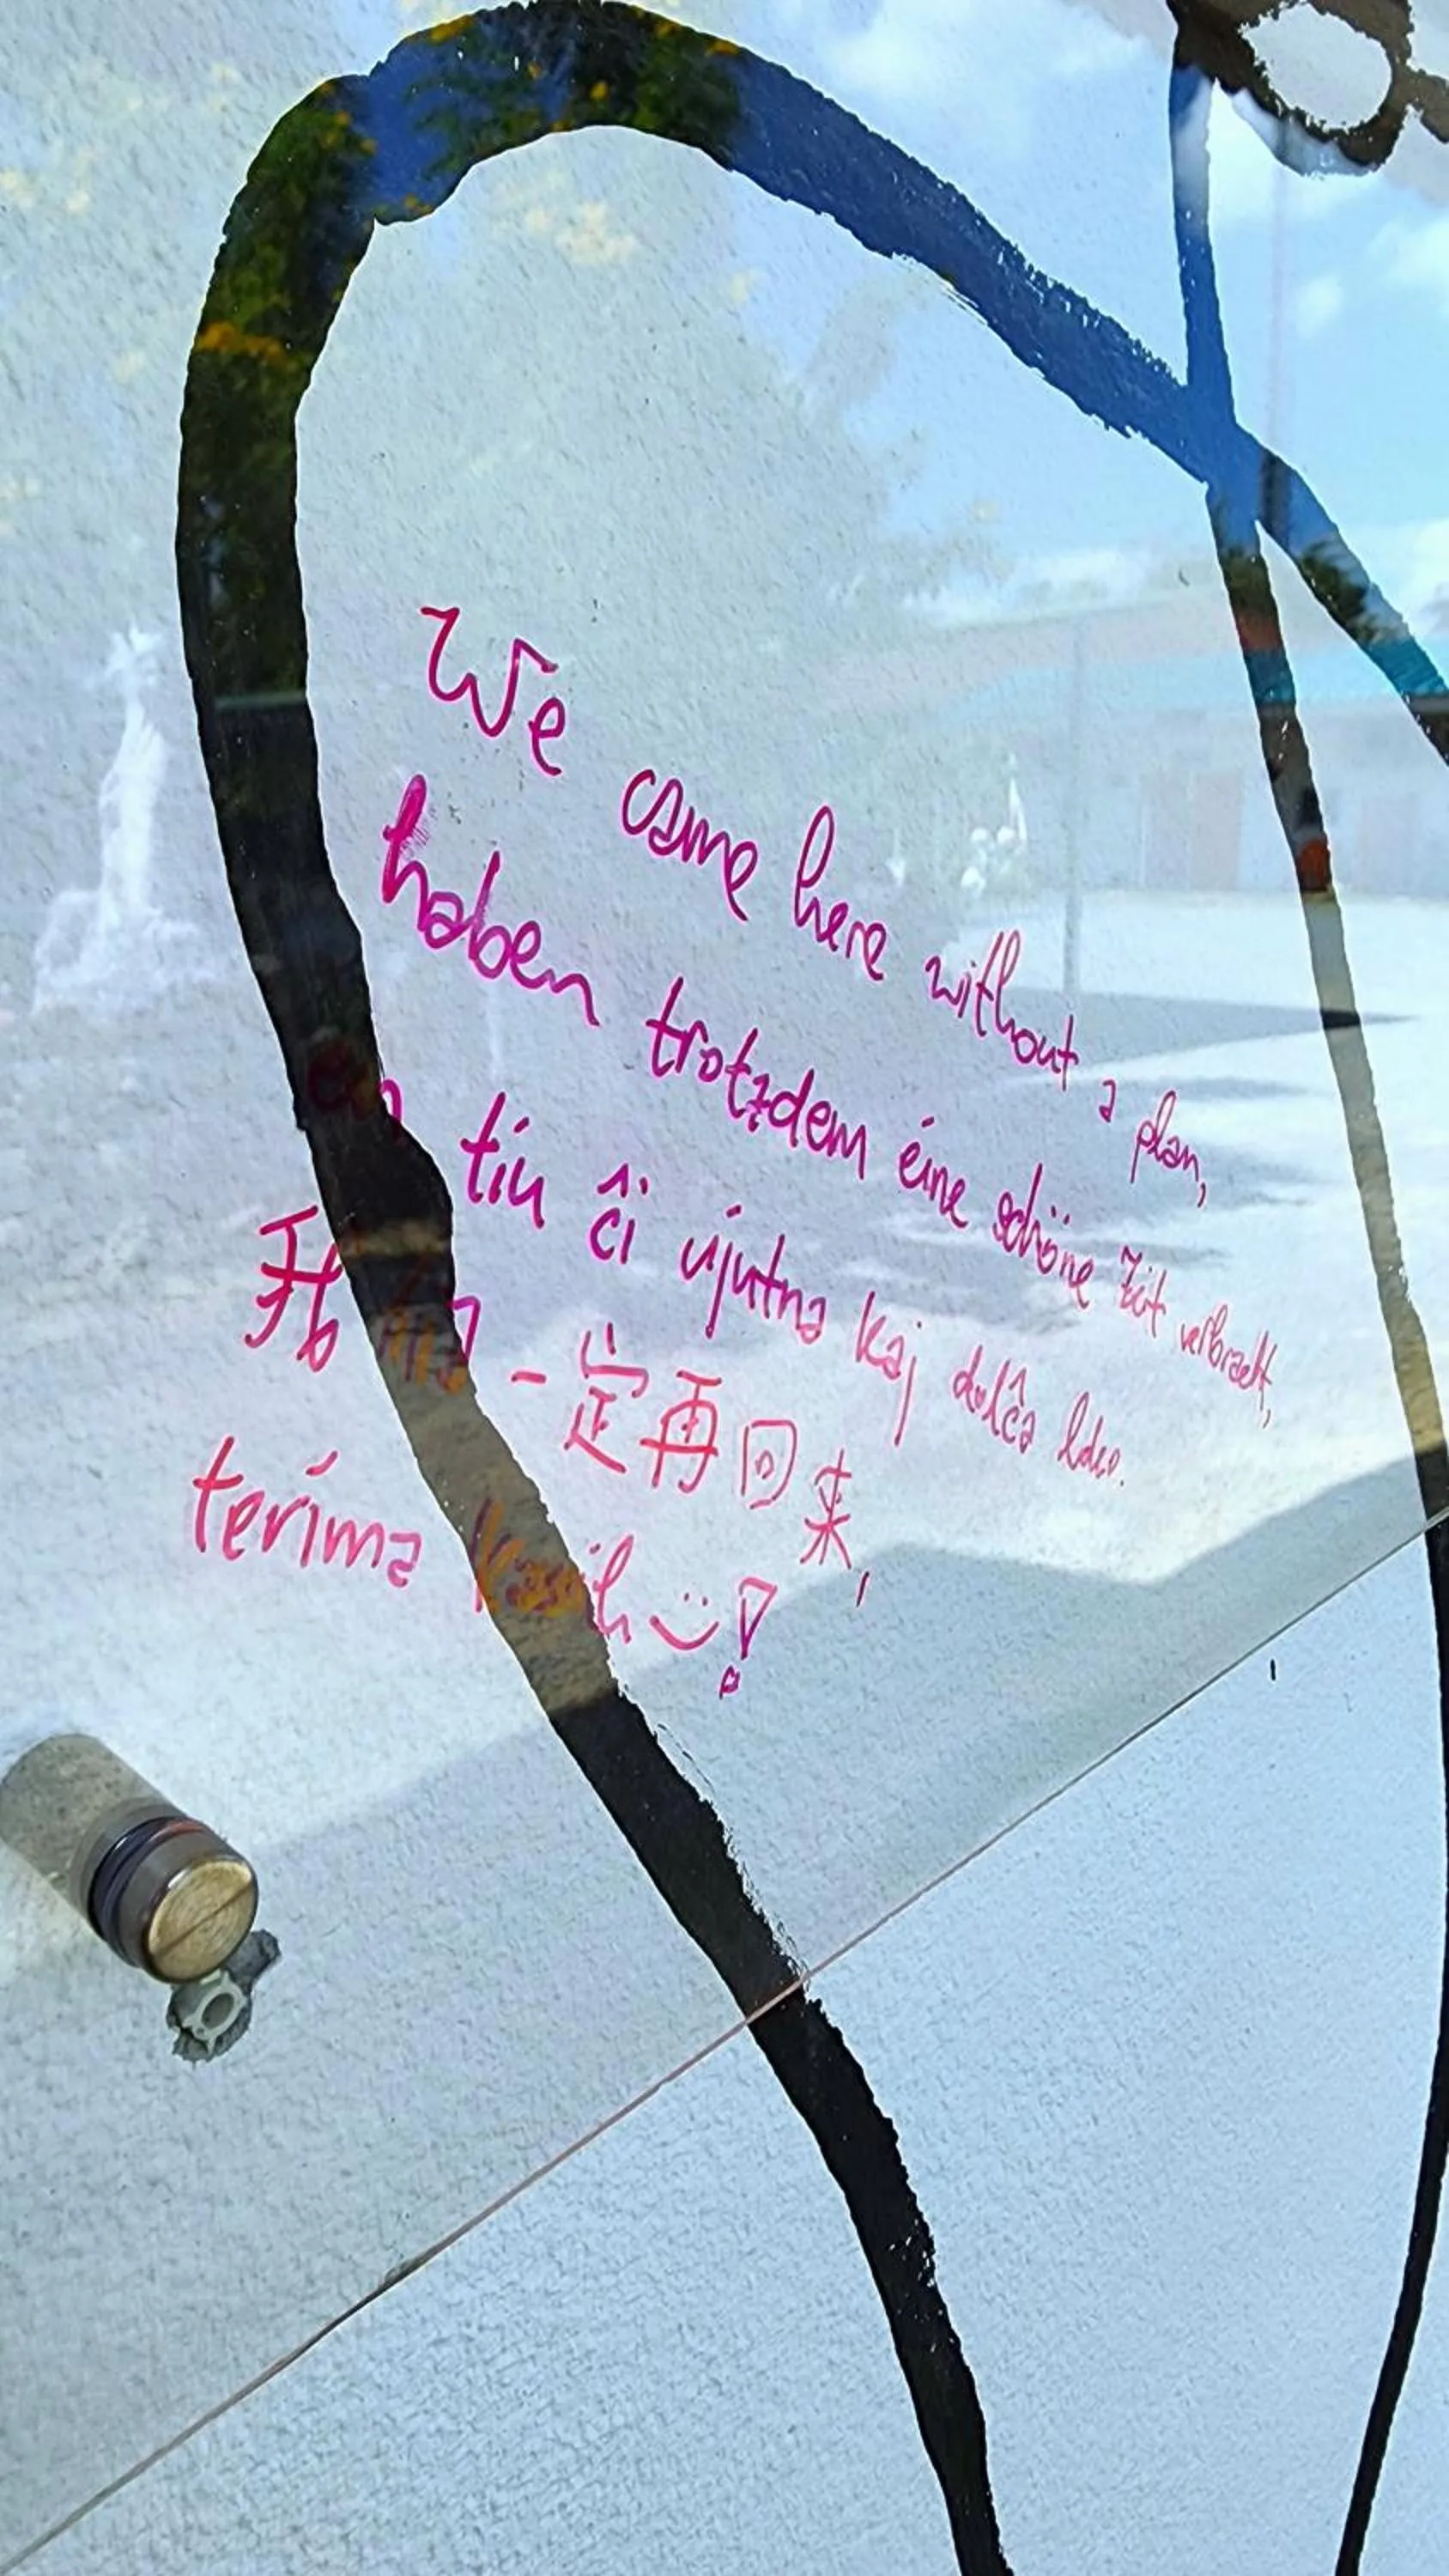 We came here without a plan,
haben trotzdem eine schöne Zeit verbracht,
en tiu ĉi ujutna kaj dolĉa loko.
我们一定再回来,
terima kasih :)!